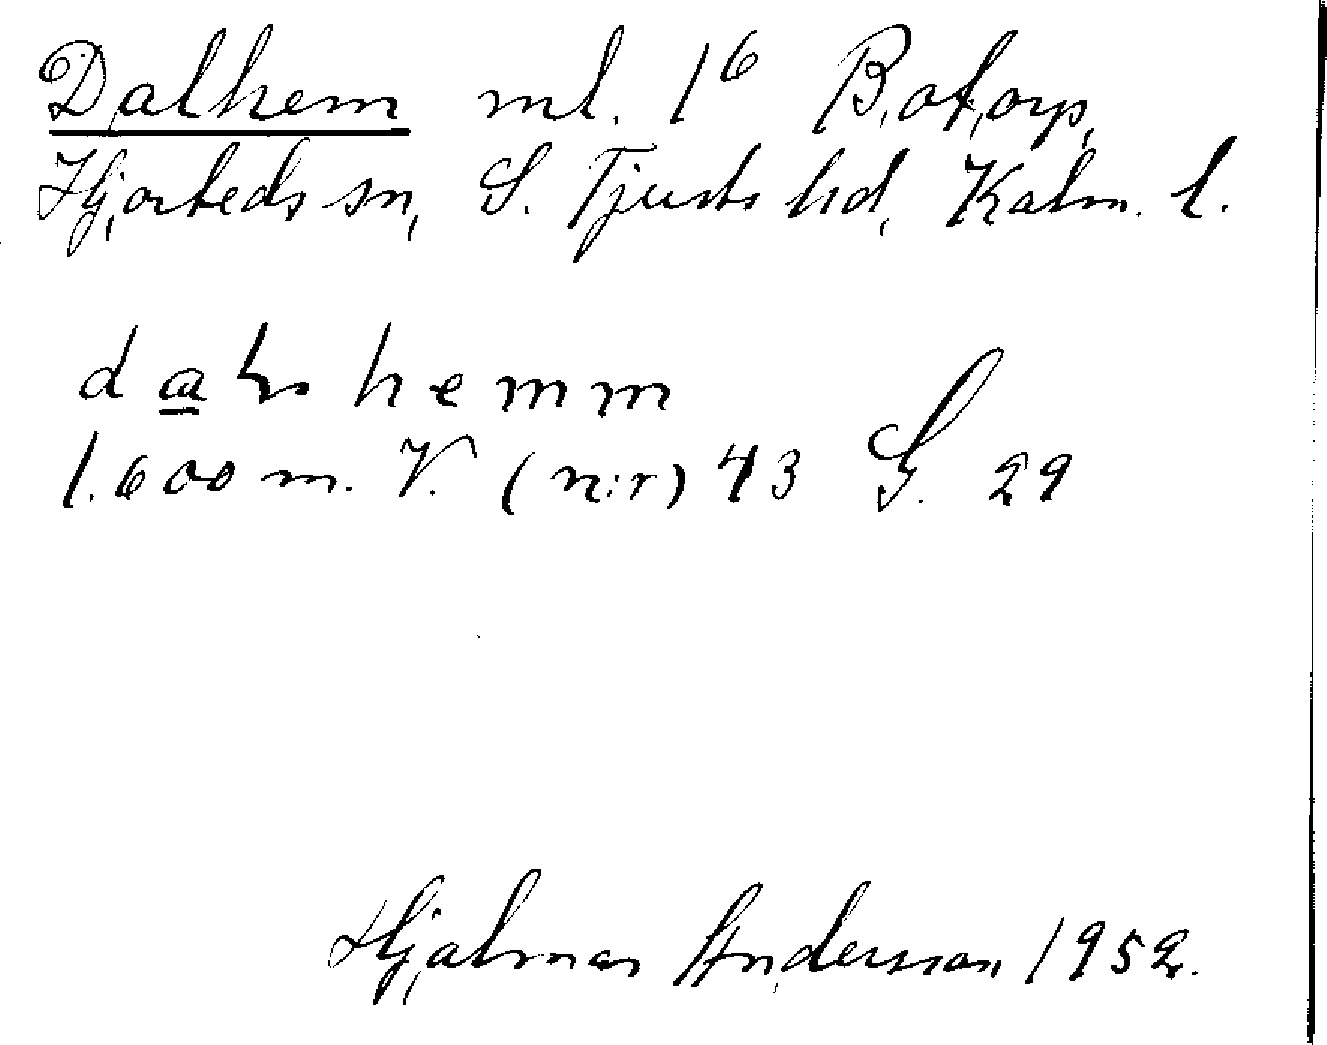 Dalhem ml. 1⁶ Botorp,
Hjorteds sn, S. Tjusts hd, Kalm. l.
hemm
1.600 m. V. (n:r) 43 G. 29
Hjalmar Andersson 1952.